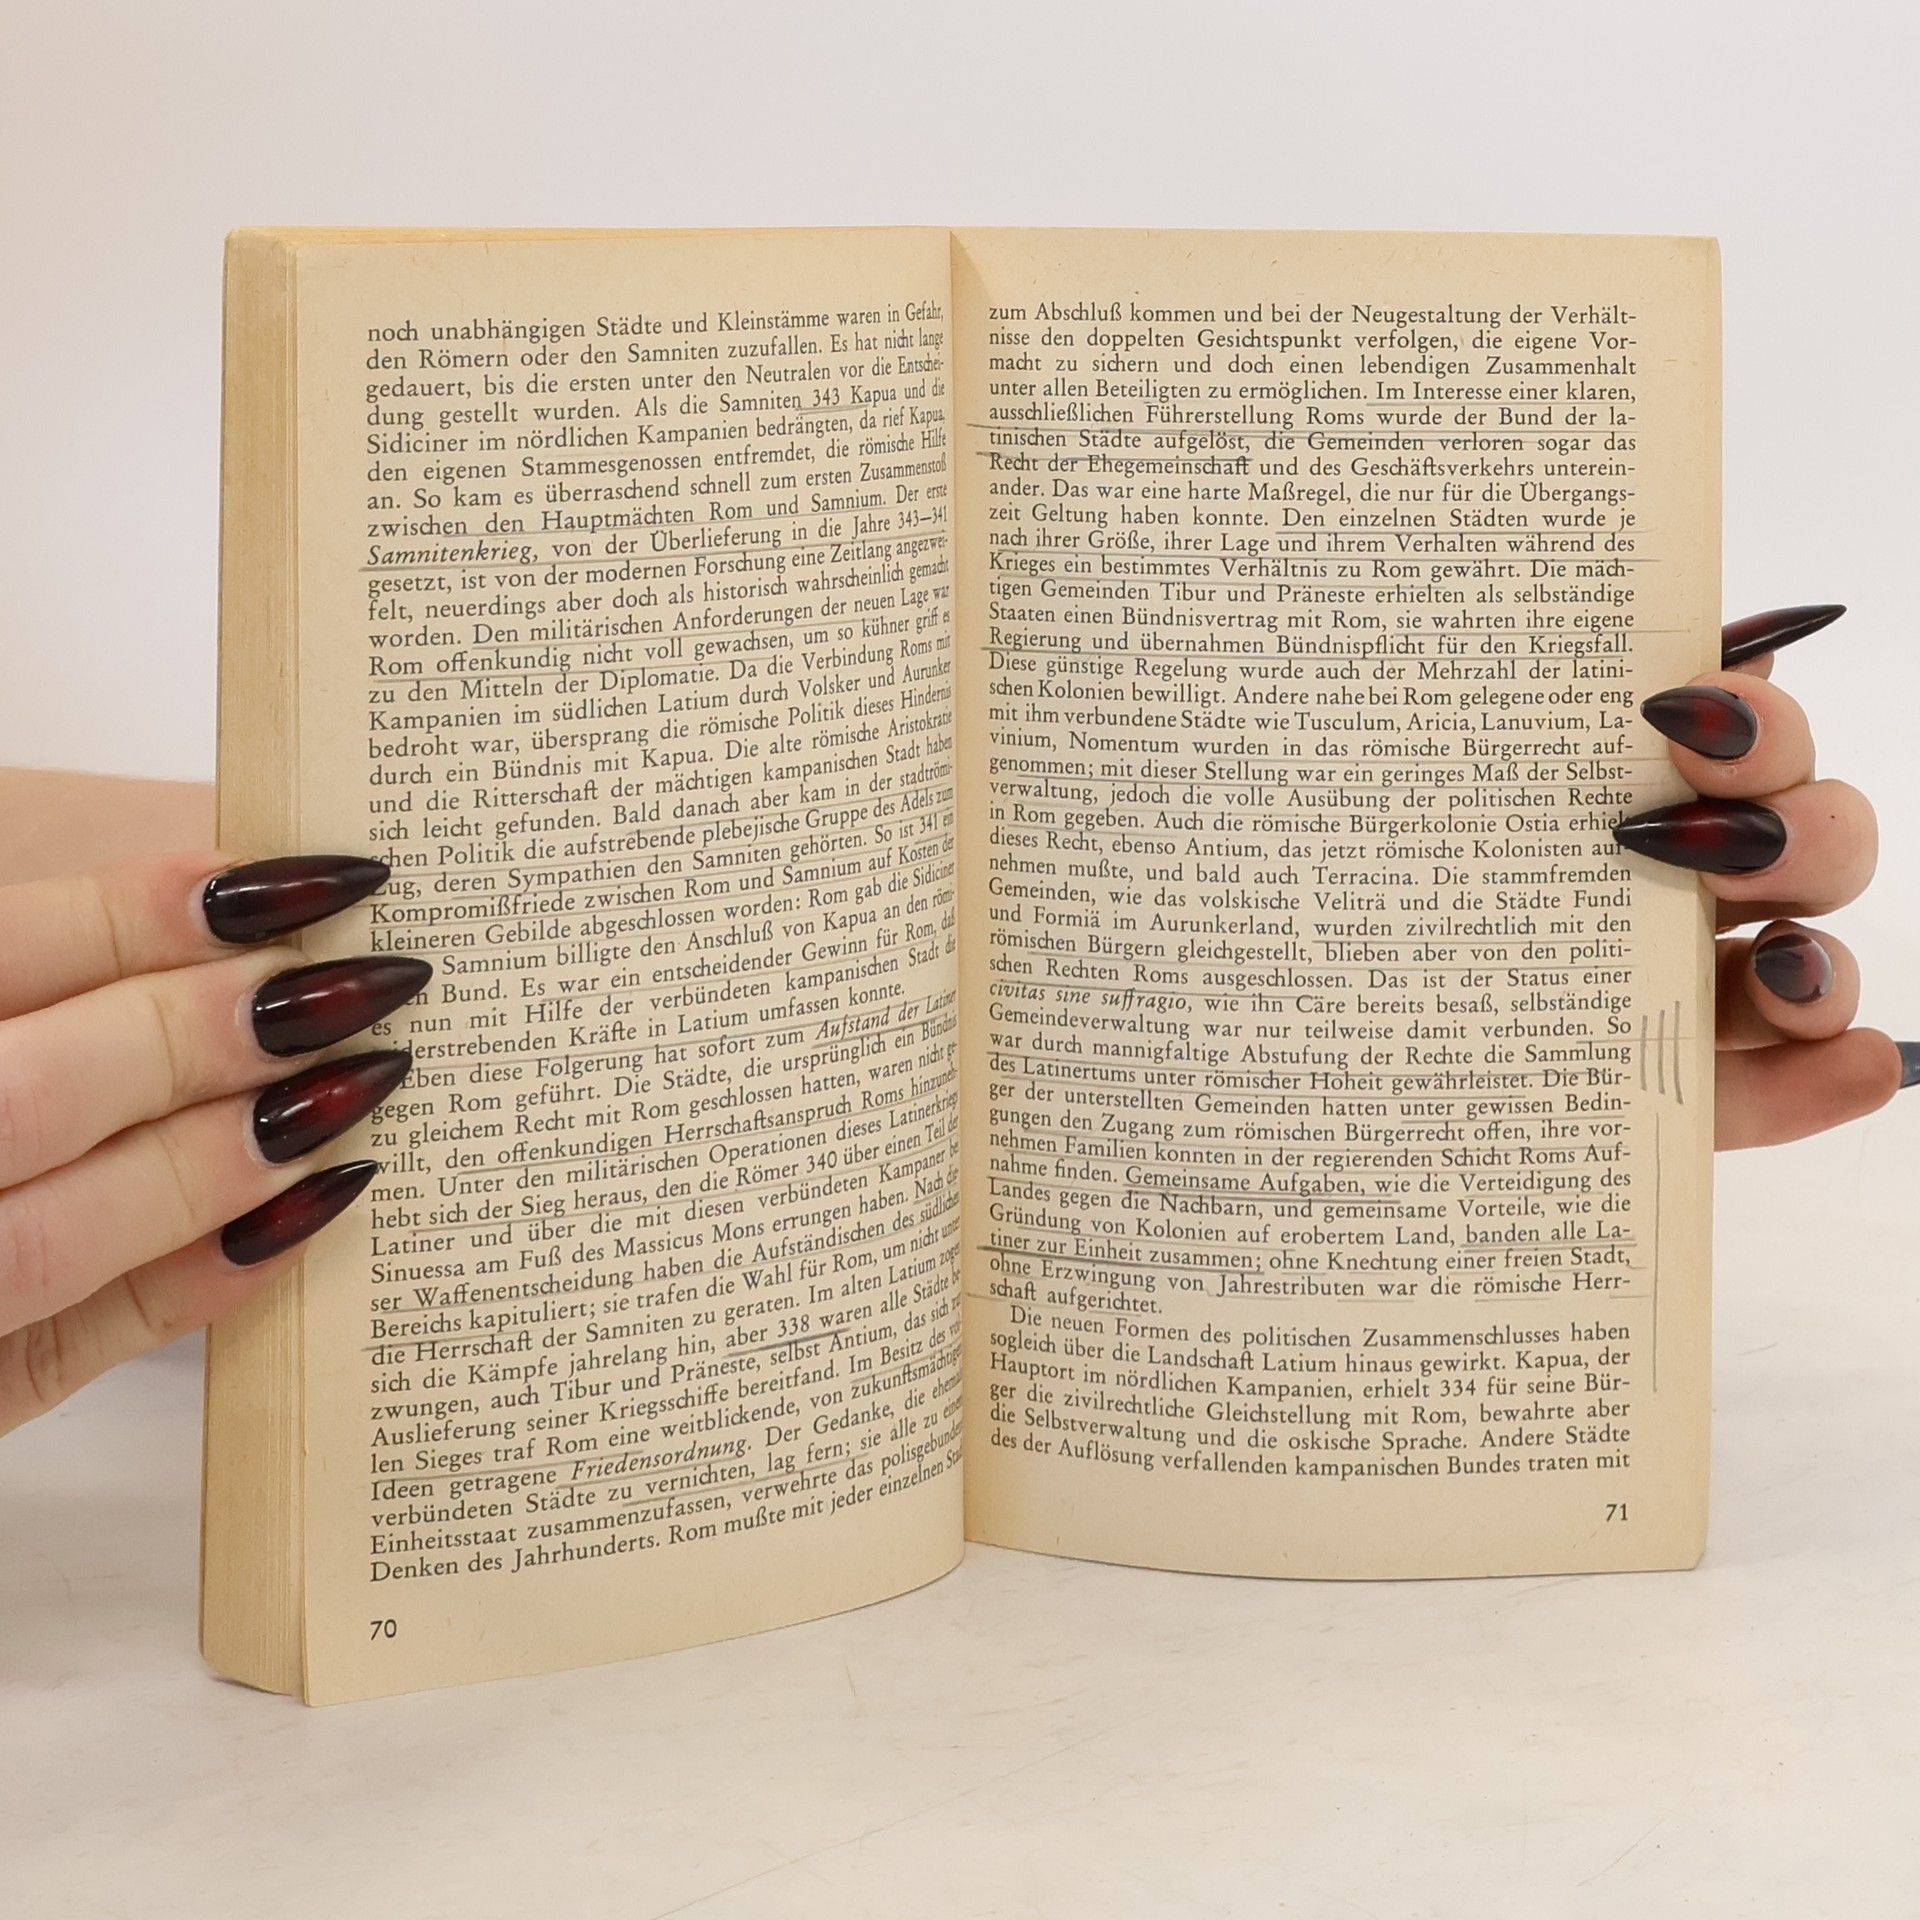 noch unabhängigen Städte und Kleinstämme waren in Gefahr,
den Römern oder den Samniten zuzufallen. Es hat nicht lange
gedauert, bis die ersten unter den Neutralen vor die Entschei-
dung gestellt wurden. Als die Samniten 343 Kapua und die
Sidiciner im nördlichen Kampanien bedrängten, da rief Kapua,
den eigenen Stammesgenossen entfremdet, die römische Hilfe
an. So kam es überraschend schnell zum ersten Zusammenstoß
zwischen den Hauptmächten Rom und Samnium. Der erste
Samnitenkrieg, von der Überlieferung in die Jahre 343–341
gesetzt, ist von der modernen Forschung eine Zeitlang angezwei-
felt, neuerdings aber doch als historisch wahrscheinlich gemacht
worden. Den militärischen Anforderungen der neuen Lage war
Rom offenkundig nicht voll gewachsen, um so kühner griff es
zu den Mitteln der Diplomatie. Da die Verbindung Roms mit
Kampanien im südlichen Latium durch Volsker und Aurunker
bedroht war, übersprang die römische Politik dieses Hindernis
durch ein Bündnis mit Kapua. Die alte römische Aristokratie
und die Ritterschaft der mächtigen kampanischen Stadt haben
sich leicht gefunden. Bald danach aber kam in der stadtrömi-
schen Politik die aufstrebende plebejische Gruppe des Adels zum
Zug, deren Sympathien den Samniten gehörten. So ist 341 ein
Kompromißfriede zwischen Rom und Samnium auf Kosten der
kleineren Gebilde abgeschlossen worden: Rom gab die Sidiciner
Samnium billigte den Anschluß von Kapua an den römi-
Bund. Es war ein entscheidender Gewinn für Rom, daß
es nun mit Hilfe der verbündeten kampanischen Stadt die
widerstrebenden Kräfte in Latium umfassen konnte.
Eben diese Folgerung hat sofort zum Aufstand der Latiner
gegen Rom geführt. Die Städte, die ursprünglich ein Bündnis
zu gleichem Recht mit Rom geschlossen hatten, waren nicht ge-
willt, den offenkundigen Herrschaftsanspruch Roms hinzuneh-
men. Unter den militärischen Operationen dieses Latinerkriegs
hebt sich der Sieg heraus, den die Römer 340 über einen Teil der
Latiner und über die mit diesen verbündeten Kampaner bei
Sinuessa am Fuß des Massicus Mons errungen haben. Nach die-
ser Waffenentscheidung haben die Aufständischen des südlichen
Bereichs kapituliert; sie trafen die Wahl für Rom, um nicht unter
die Herrschaft der Samniten zu geraten. Im alten Latium zogen
sich die Kämpfe jahrelang hin, aber 338 waren alle Städte be-
zwungen, auch Tibur und Präneste, selbst Antium, das sich zur
Auslieferung seiner Kriegsschiffe bereitfand. Im Besitz des vol-
len Sieges traf Rom eine weitblickende, von zukunftsmächtigen
Ideen getragene Friedensordnung. Der Gedanke, die ehemals
verbündeten Städte zu vernichten, lag fern; sie alle zu einem
Einheitsstaat zusammenzufassen, verwehrte das polisgebundene
Denken des Jahrhunderts. Rom mußte mit jeder einzelnen Stadt
70
zum Abschluß kommen und bei der Neugestaltung der Verhält-
nisse den doppelten Gesichtspunkt verfolgen, die eigene Vor-
macht zu sichern und doch einen lebendigen Zusammenhalt
unter allen Beteiligten zu ermöglichen. Im Interesse einer klaren,
ausschließlichen Führerstellung Roms wurde der Bund der la-
tinischen Städte aufgelöst, die Gemeinden verloren sogar das
Recht der Ehegemeinschaft und des Geschäftsverkehrs unterein-
ander. Das war eine harte Maßregel, die nur für die Übergangs-
zeit Geltung haben konnte. Den einzelnen Städten wurde je
nach ihrer Größe, ihrer Lage und ihrem Verhalten während des
Krieges ein bestimmtes Verhältnis zu Rom gewährt. Die mäch-
tigen Gemeinden Tibur und Präneste erhielten als selbständige
Staaten einen Bündnisvertrag mit Rom, sie wahrten ihre eigene
Regierung und übernahmen Bündnispflicht für den Kriegsfall.
Diese günstige Regelung wurde auch der Mehrzahl der latini-
schen Kolonien bewilligt. Andere nahe bei Rom gelegene oder eng
mit ihm verbundene Städte wie Tusculum, Aricia, Lanuvium, La-
vinium, Nomentum wurden in das römische Bürgerrecht auf-
genommen; mit dieser Stellung war ein geringes Maß der Selbst-
verwaltung, jedoch die volle Ausübung der politischen Rechte
in Rom gegeben. Auch die römische Bürgerkolonie Ostia erhielt
dieses Recht, ebenso Antium, das jetzt römische Kolonisten auf-
nehmen mußte, und bald auch Terracina. Die stammfremden
Gemeinden, wie das volskische Veliträ und die Städte Fundi
und Formiä im Aurunkerland, wurden zivilrechtlich mit den
römischen Bürgern gleichgestellt, blieben aber von den politi-
schen Rechten Roms ausgeschlossen. Das ist der Status einer
civitas sine suffragio, wie ihn Cäre bereits besaß, selbständige
Gemeindeverwaltung war nur teilweise damit verbunden. So
war durch mannigfaltige Abstufung der Rechte die Sammlung
des Latinertums unter römischer Hoheit gewährleistet. Die Bür-
ger der unterstellten Gemeinden hatten unter gewissen Bedin-
gungen den Zugang zum römischen Bürgerrecht offen, ihre vor-
nehmen Familien konnten in der regierenden Schicht Roms Auf-
nahme finden. Gemeinsame Aufgaben, wie die Verteidigung des
Landes gegen die Nachbarn, und gemeinsame Vorteile, wie die
Gründung von Kolonien auf erobertem Land, banden alle La-
tiner zur Einheit zusammen; ohne Knechtung einer freien Stadt,
ohne Erzwingung von Jahrestributen war die römische Herr-
schaft aufgerichtet.
Die neuen Formen des politischen Zusammenschlusses haben
sogleich über die Landschaft Latium hinaus gewirkt. Kapua, der
Hauptort im nördlichen Kampanien, erhielt 334 für seine Bür-
ger die zivilrechtliche Gleichstellung mit Rom, bewahrte aber
die Selbstverwaltung und die oskische Sprache. Andere Städte
des der Auflösung verfallenden kampanischen Bundes traten mit
71